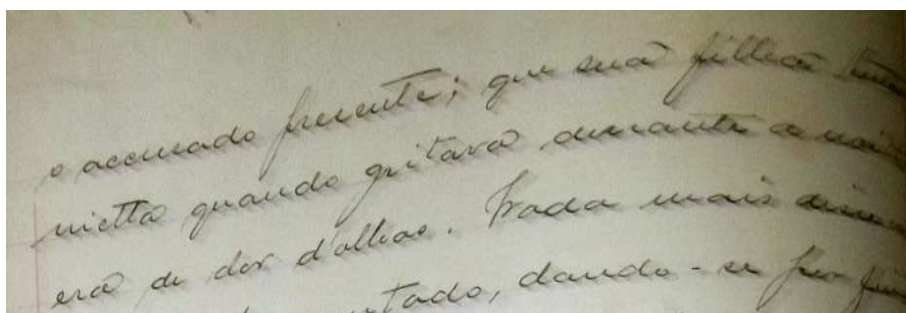 o accusado presente; que sua filha
nietta quando gritava durante a noi
era de dor d'olhos. Nada mais disse
tado, dando-se por fin